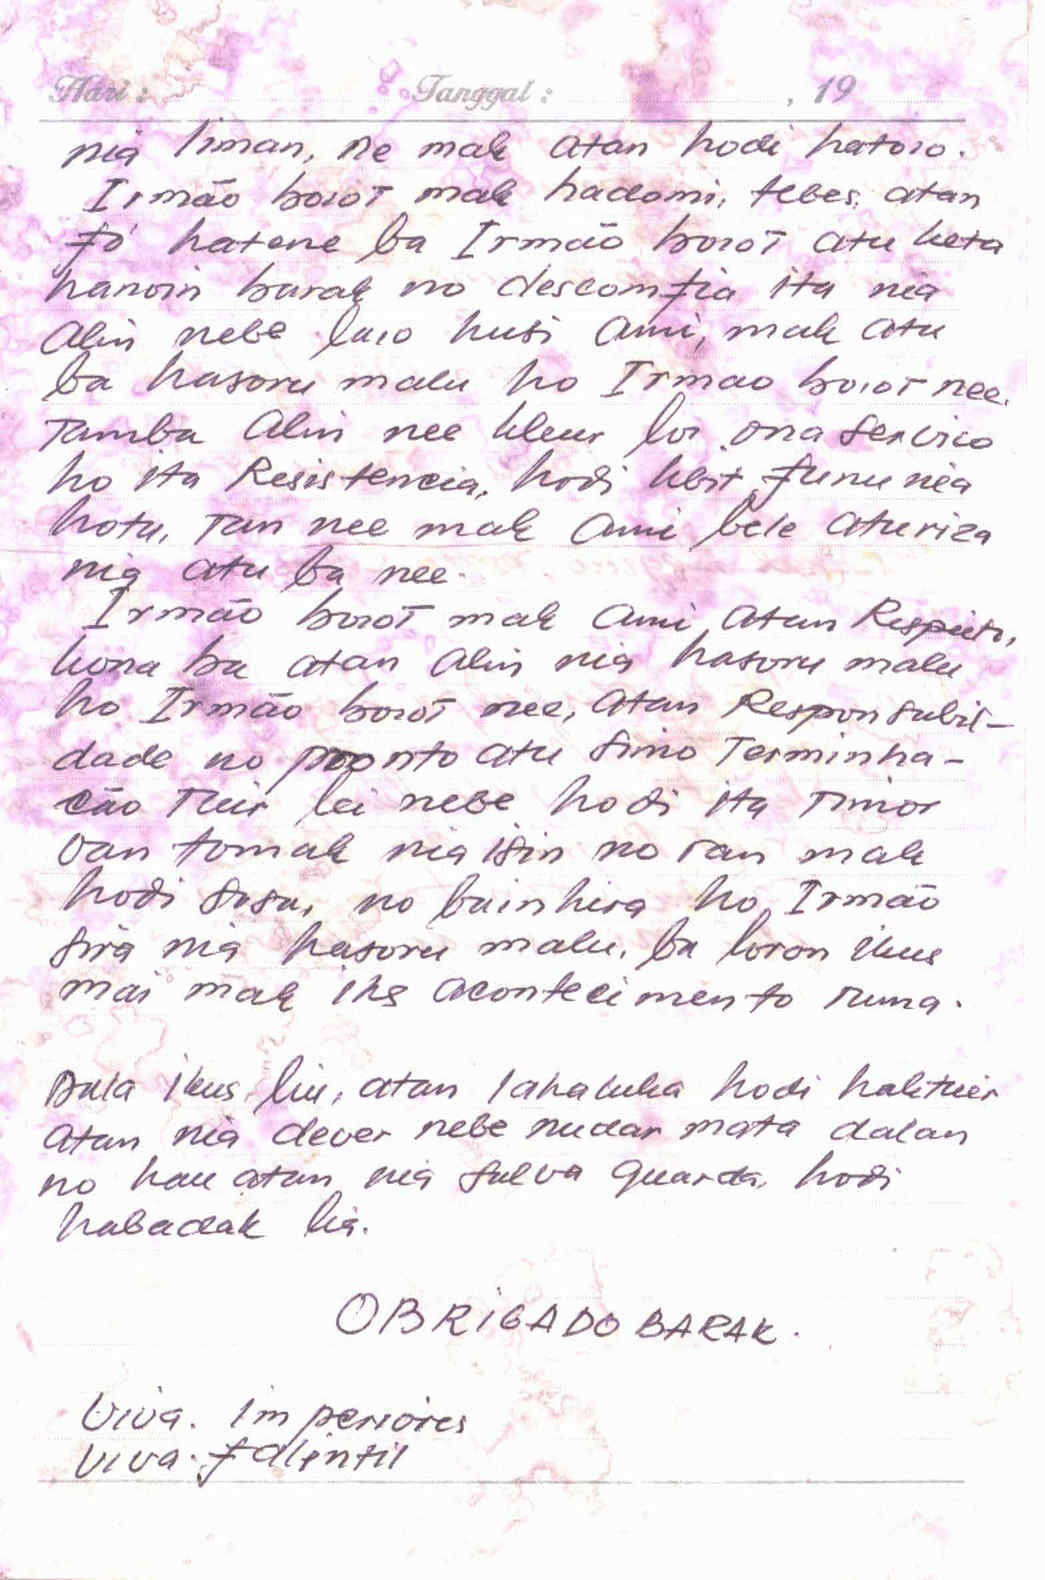 Hari : Tanggal : , 19
nia liman, ne mak atan hodi hatoio.
Irmão boiot mak hadomi, tebes, atan
fó hatene ba Irmão boiot atu keta
hanoin barak no descomfia ita nia
Alin nebe laio husi Ami, mak atu
ba hasoru malu ho Irmao boiot nee.
Tamba Alin nee kleur loi ona servico
ho ita Resistencia, hodi kbit funu nia
hotu, Tan nee mak Ami bele aturiza
nia atu ba nee.
Irmão boiot mak Ami atan Respeito,
kona ba atan Alin nia hasoru malu
ho Irmão boiot nee, atan Responsabil-
dade no pronto atu simo Terminha-
cão Tuir lei nebe hodi ita Timor
oan tomak nia isin no ran mak
hodi sosa, no bainhira ho Irmão
sira nia hasoru malu, ba loron ikus
mai mak iha acontecimento ruma.
Dala ikus liu, atan lahaluha hodi haktuir
atan nia dever nebe nudar mata dalan
no hau atan nia salva guarda, hodi
habadak lia.
OBRIGADO BARAK.
Viva. Imperiores
Viva. falintil